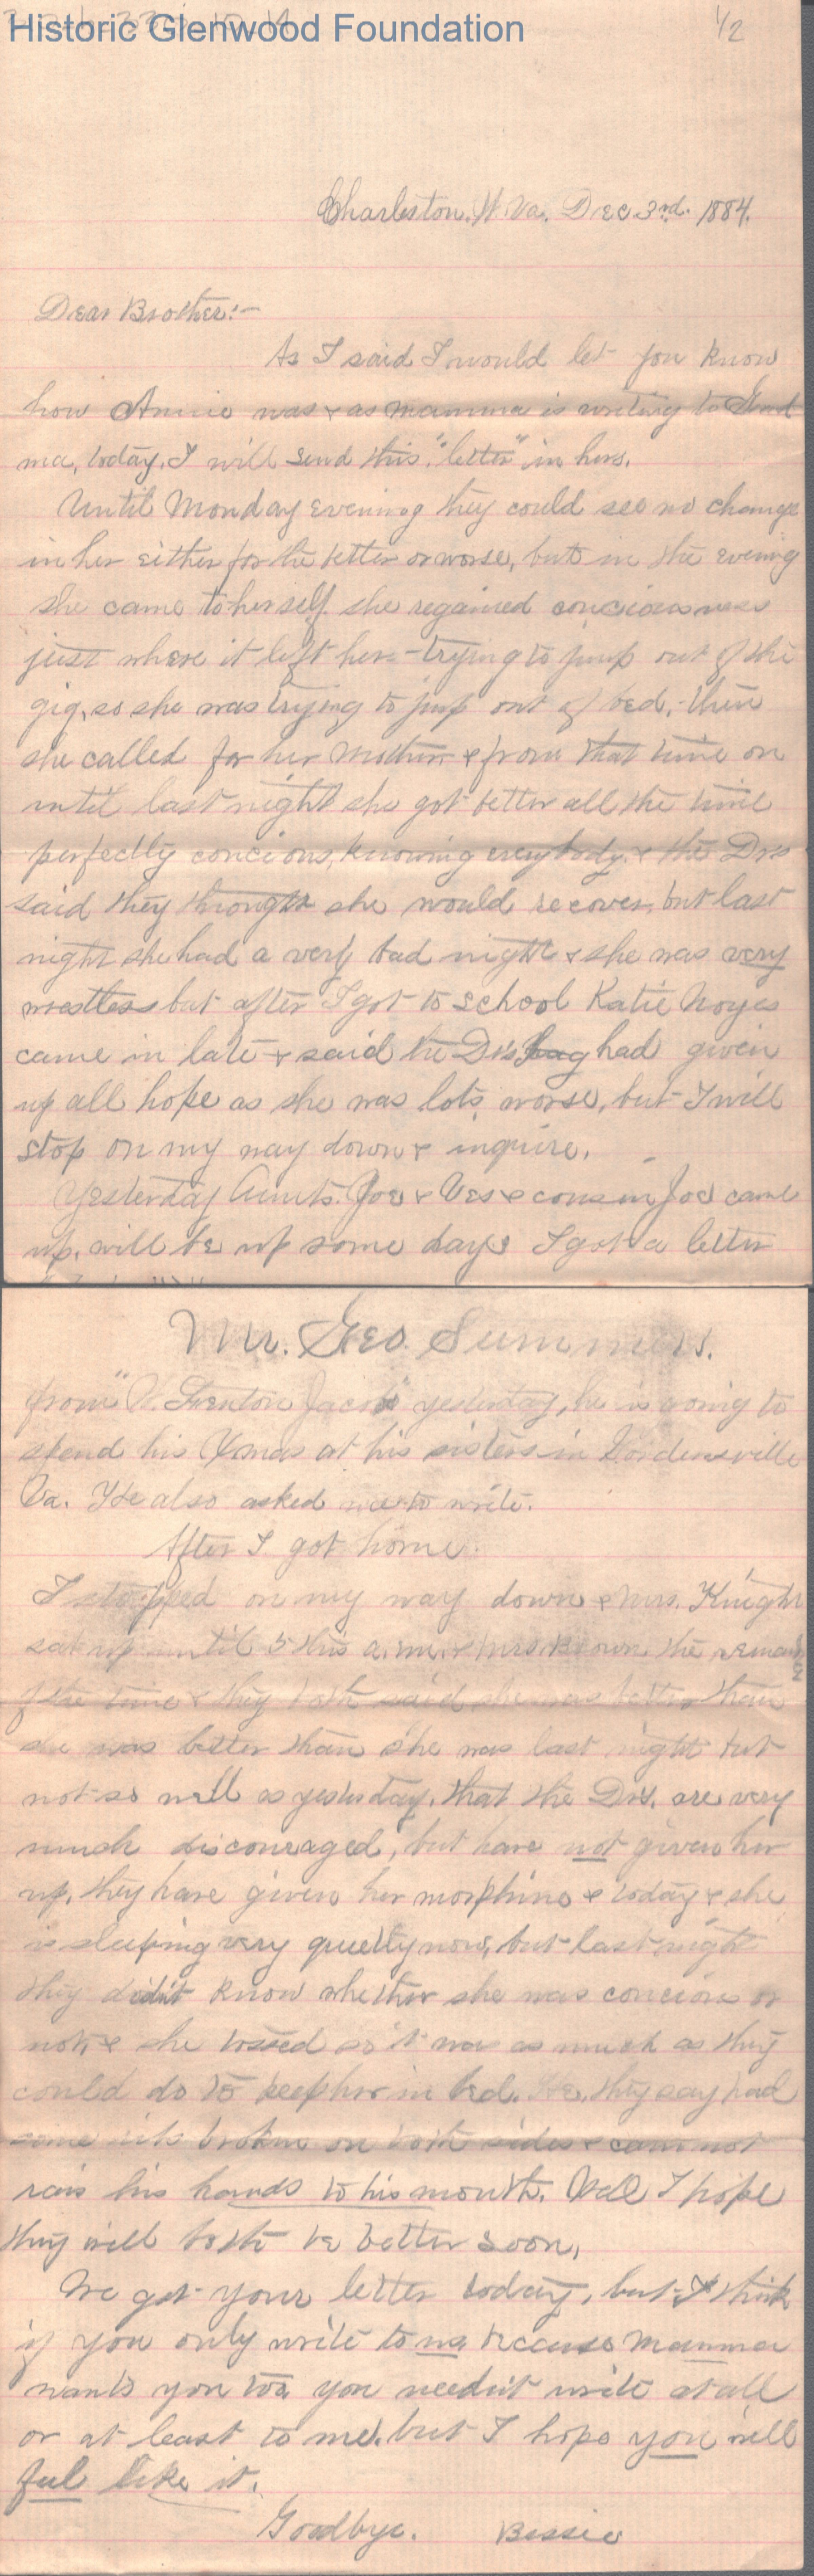 Historic Glenwood Foundation
1/2
Charleston, W. Va. Dec 3rd. 1884.
Dear Brother:-
As I said I would let you know
how Annie was & as mamma is writing to Grand
ma, today, I will send this "letter" in hers.
Until Monday evening they could see no change
in her either for the better or worse, but in the evening
she came to herself she regained conciousness
just where it left her - trying to jump out of the
gig, so she was trying to jump out of bed, - then
she called for her mother & from that time on
until last night she got better all the time
perfectly concious, knowing everybody, & the Drs
said they throught she would recover, but last
night she had a very bad night & she was very
restless but after I got to school Katie Noyes
came in late & said the Drs had given
up all hope as she was lots worse, but I will
stop on my way down & inquire.
Yesterday Aunts. Joe & Ves & cousin Joe came
up, will be up some days I got a letter
Mr. Geo. Summers.
from " Trenton Jacob" yesterday, he is going to
spend his Xmas at his sisters in Gordensville
Va. He also asked me to write.
After I got home.
I stopped on my way down & Mrs. Knight
sat up until 5 this a.m. & Mrs Brown the remain
of the time & they both said she was better than
she was better than she was last night but
not so well as yesterday, that the Drs. are very
much discouraged, but have not given her
up, they have given her morphine & today & she
is sleeping very quietly now, but last night
they didn't know whether she was concious or
not, & she tossed so it was as much as they
could do to keep her in bed. He, they say had
some ribs broken on both sides & cannot
rais his hands to his mouth. Well I hope
they will both be better soon,
We got your letter today, but I think
if you only write to us because mamma
wants you too you needn't write at all
or at least to me, but I hope you will
feel like it.
Goodbye. Bessie